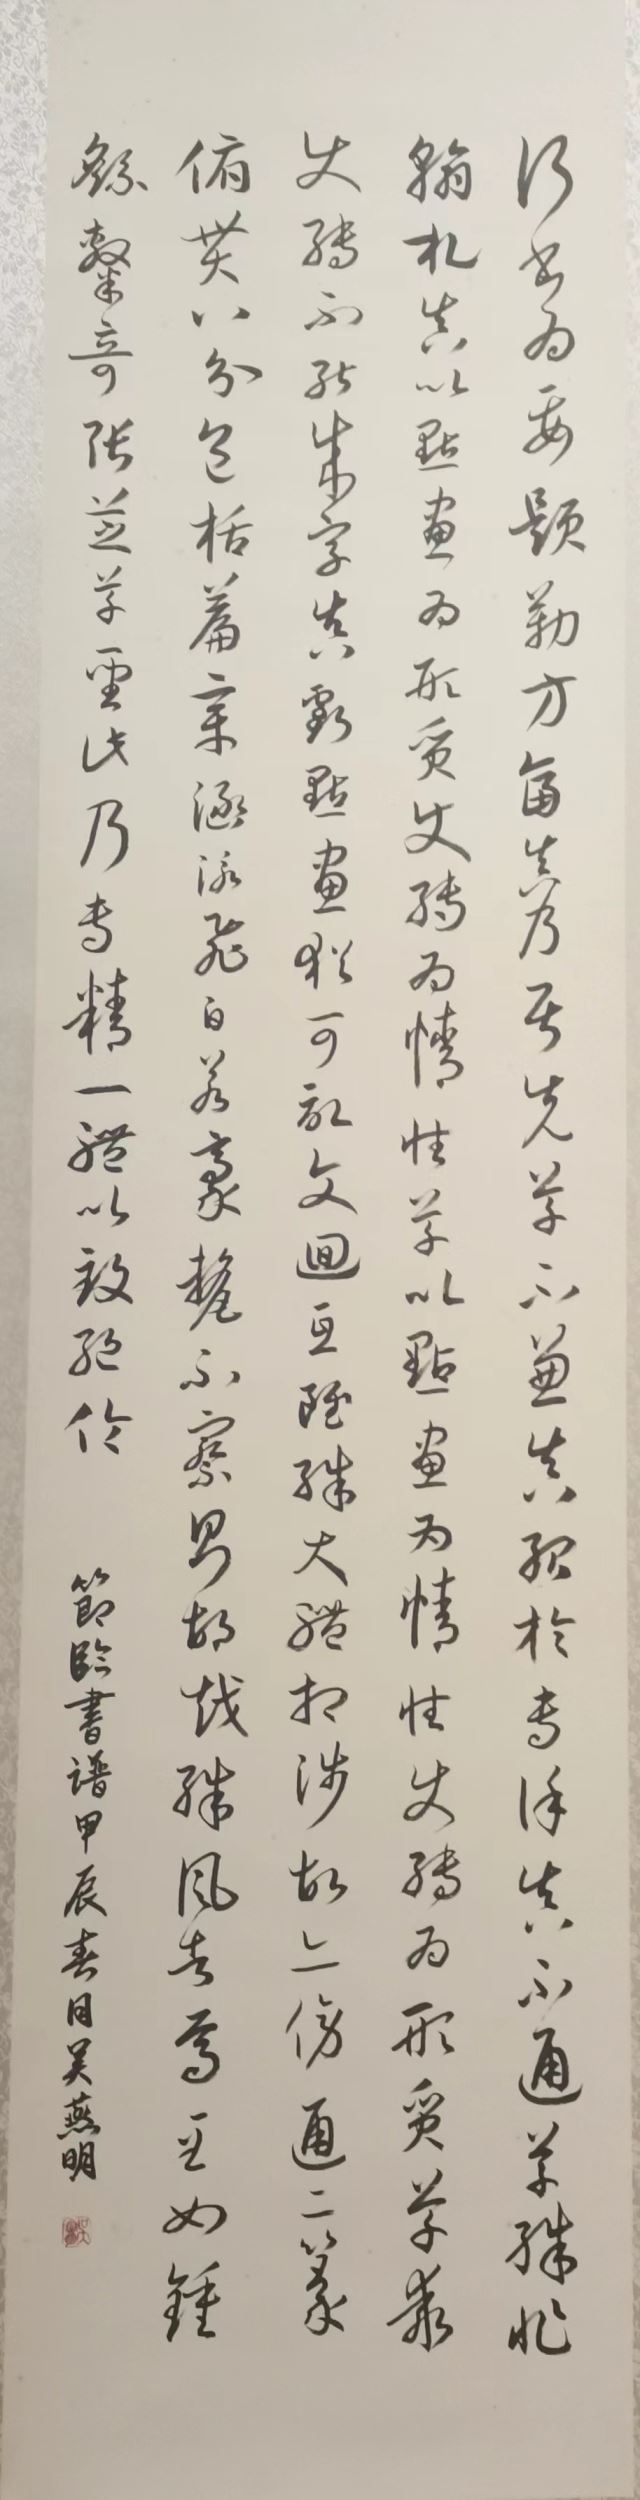 行書為要題勒方畐真乃居先草不兼真殆於專謹真不通草殊非
翰札真以點畫為形質使轉為情性草以點畫為情性使轉為形質草乖
使轉不能成字真虧點畫猶可記文迴互雖殊大體相涉故亦傍通二篆
俯貫八分包括篇章涵泳飛白若豪釐不察則胡越殊風者焉至如鍾
繇隸奇張芝草聖此乃專精一體以致絕倫
節臨書譜甲辰春日吳燕明